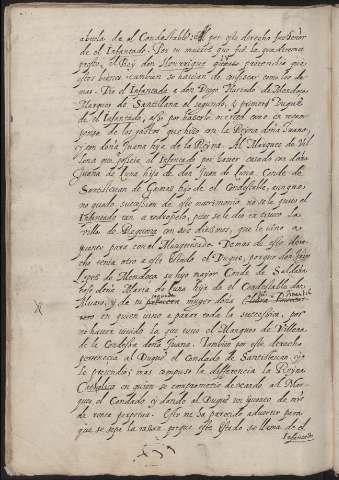 abuela de el Condestable por este derecho fue Señor
de el Infantado. Por su muerte que fue la que
el Rey don Henrrique quarto pretendia que
estos bienes tambien se havian de confiscar como los de
mas. Dio el Infantado a don Diego Hurtado de Mendoza
Marques de Santillana el segundo, y primero Duque
de el Infantado, assi por hacerle merced como en recom
pensa de los gastos que hizo con la Reyna doña Juana,
y con doña Juana hija de la Reyna. Al Marques de Vi
llena pertenescia el Infantado por haver casado con doña
Juana de Luna hija de don Juan de Luna, Conde de
Santistevan de Gormas hijo de el Condestable, aunque
no quedo succession de este matrimonio no se le quiso el
Infantado tan a redropelo, pues se le dio en trueco la
villa de Requena con sus diezmos, que le vino a
puesto para con el Marquesado. Demas de este dere
cho tenia otro a este Estado el Duque, porque don Iñigo
Lopez de Mendoza su hijo mayor Conde de Saldaña
caso doña Maria de Luna hija de el Condestable don
Alvaro, y de su segunda muger doña Juana Pimentel
en quien vino a parar toda la succession, por
no haver tenido la que tuvo el Marques de Villena
de la Condessa doña Juana. Tambien por este derecho
pertenecia al Duque el Condado de Santistevan, y
le pretendio; mas compuso la differencia la Reyna
Catholica en quien se comprometio dexando al Mar
ques el Condado, y dando al Duque un quento de mrs
de renta perpetua. Esto me ha parecido advertir para
que se sepa la razon porque este Estado se llama de el
Infantado